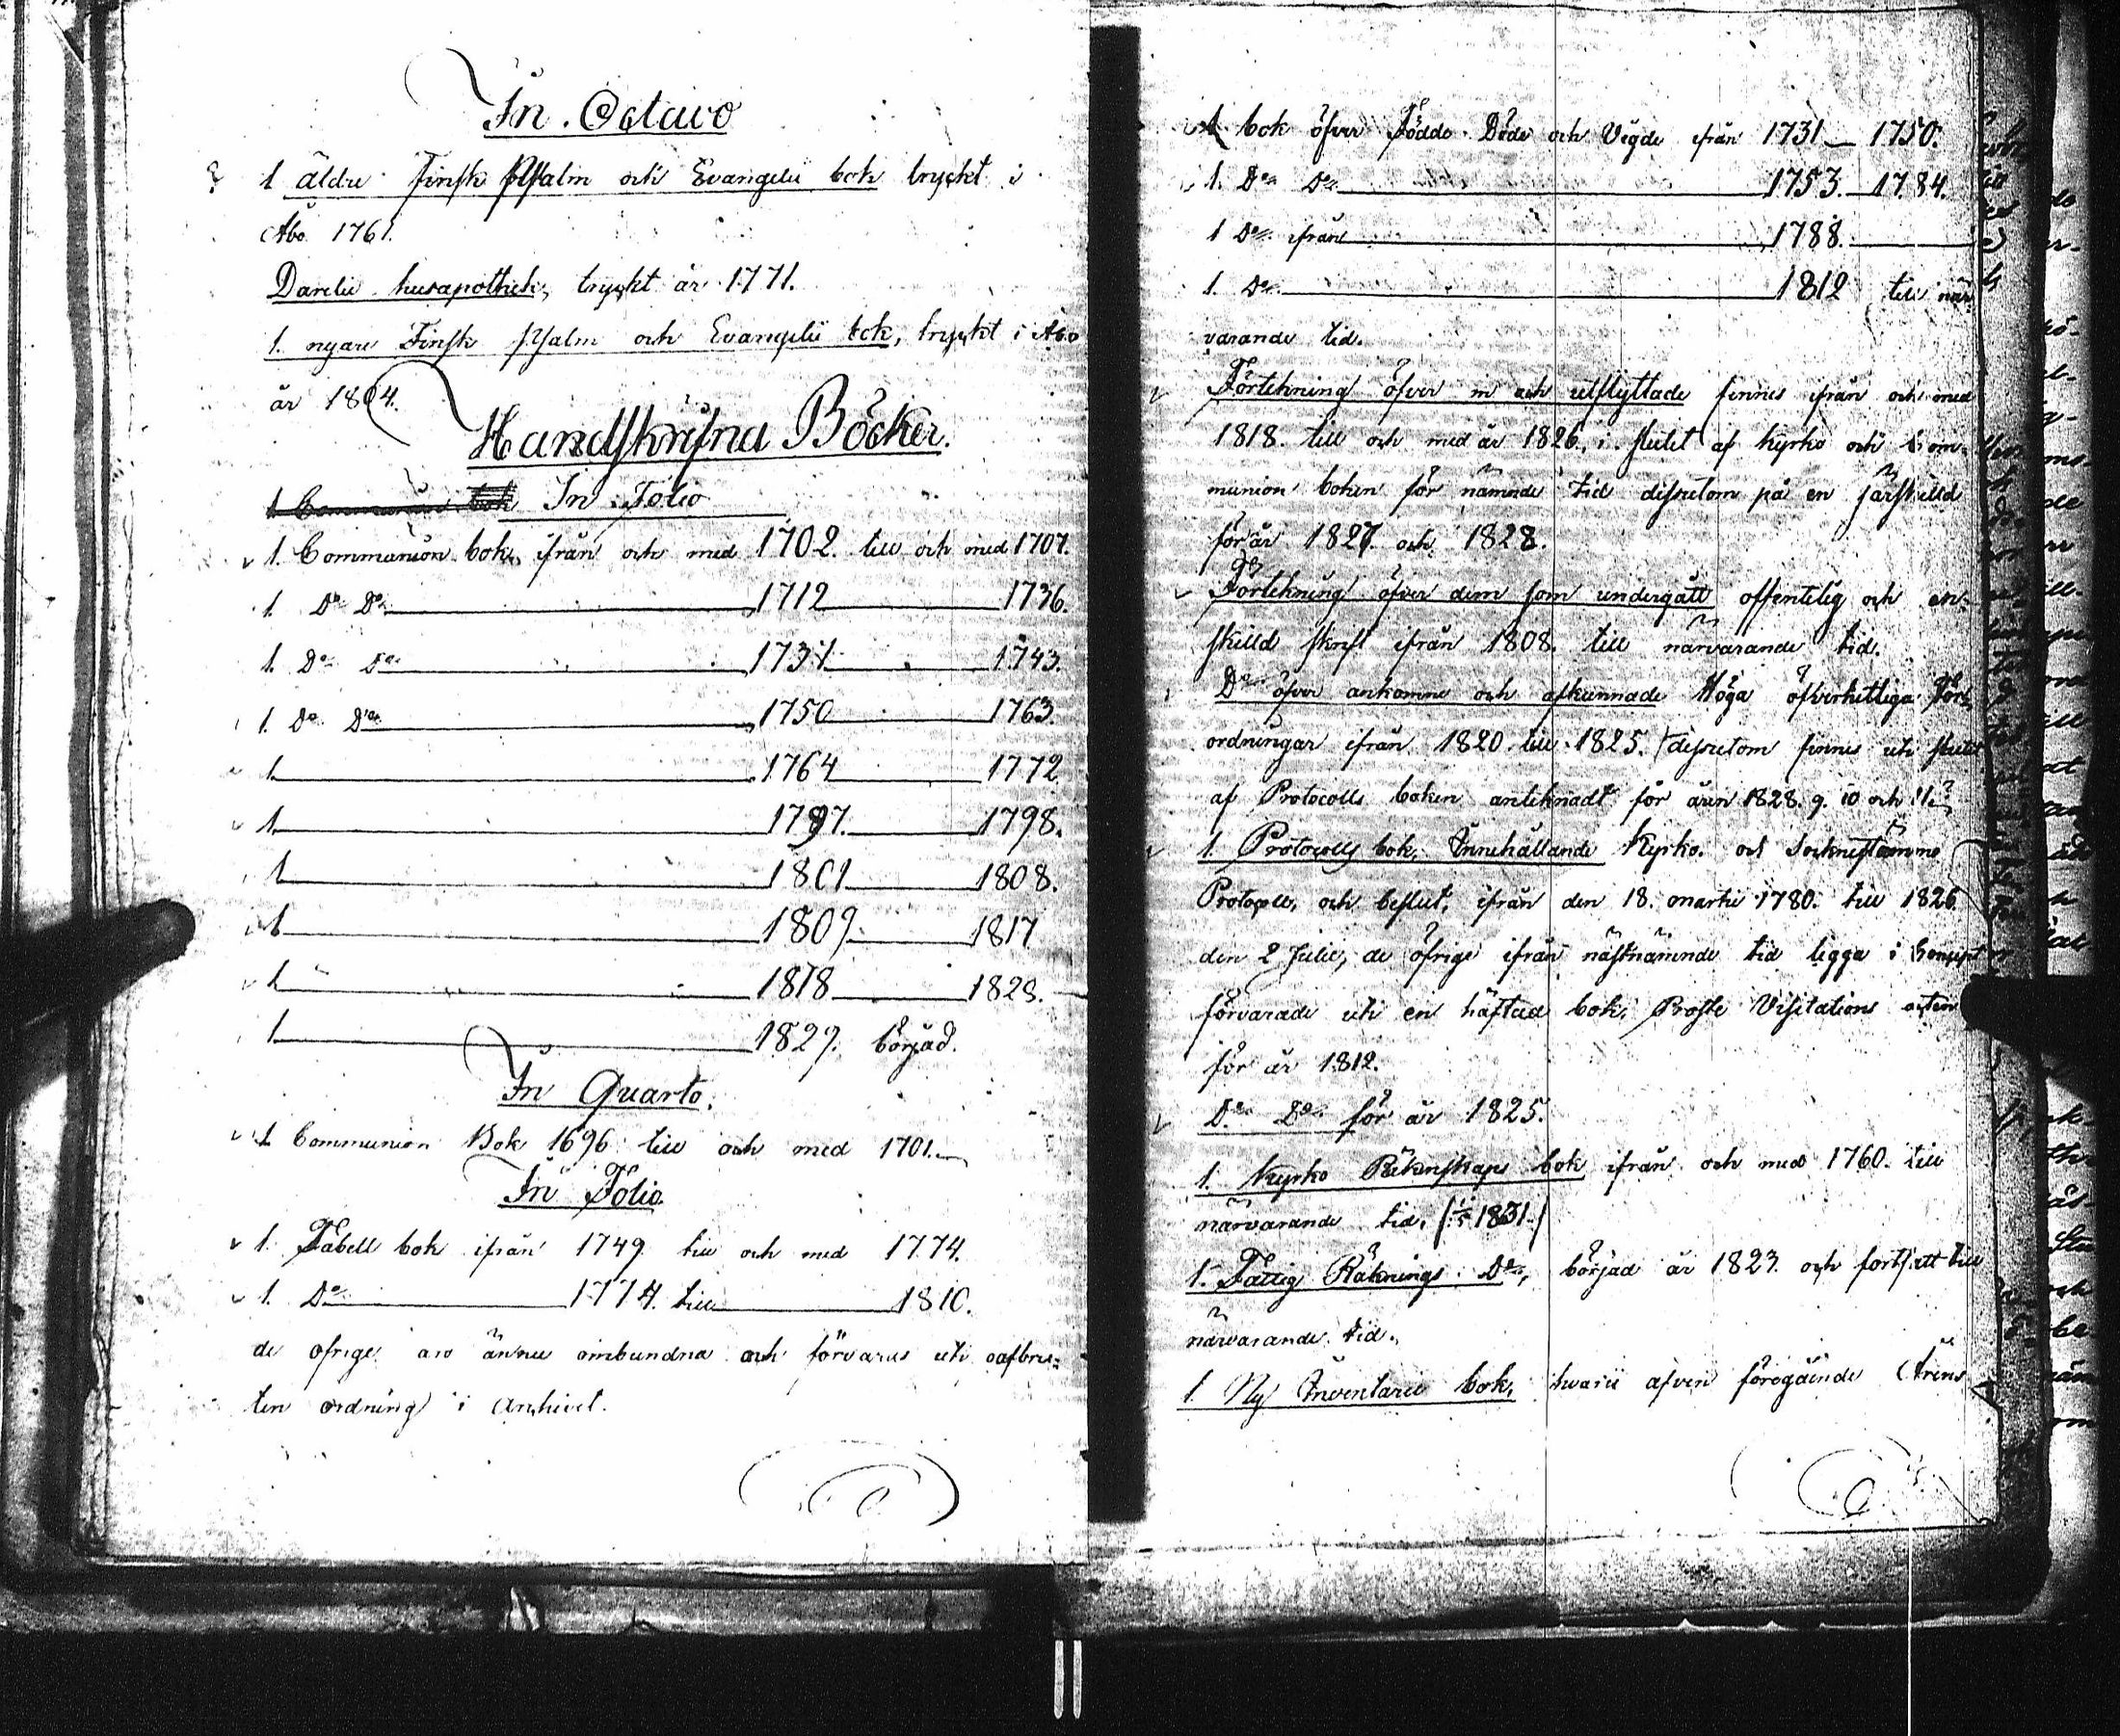 In Octavo
1 äldre Finsk Psalm och Evangelii bok tryckt i
Åbo 1761.
Darelii husapothek, tryckt år 1771.
1. nyare Finsk Psalm och Evangelii bok, tryckt i Åbo
år 1804.
Handskrifna Böcker.
1 Communion bok In Folio
1. Communion bok, ifrån och med 1702. till och med 1707.
1 Do Do 1712 1736.
1. Do Do 1737 1743.
1. Do Do 1750 1763.
1 1764 1772
1 1797. 1798.
1 1801 1808.
1 1809. 1817
1 1818 1828.
1 1829. börjad.
In Quarto.
1 Communion Bok 1696 till och med 1701.
In Folio
1. Tabell bok ifrån 1749 till och med 1774.
1. Do 1774. till 1810.
de öfrige äro ännu oinbundna och förvaras uti oafbru-
ten ordning i Archivet.
1 bok öfver Födde Döde och Vigde ifrån 1731 — 1750.
1. Do Do 1753. 1784.
1 Do ifrån 1788.
1. Do 1812 till när
varande tid.
Förtekning öfver in och utflyttade finnes ifrån och med
1818. till och med år 1826, i slutet af kyrko och Com-
munion boken för nämnde tid dessutom på en särskilld
för år 1827. och 1828.
Förtekning öfver dem som undergått offentelig och en-
skilld skrift ifrån 1808. till närvarande tid.
Do öfver ankomne och afkunnade Höga öfverhetliga För-
ordningar ifrån 1820. till 1825. dessutom finnes uti slutet
af Protocolls boken anteknadt för åren 1828. 9. 10 och
1. Protocolls bok, Innehållande Kyrko. och Sockenstämmo
Protocoll, och beslut, ifrån den 18. martii 1780. till 1826
den 2 Julii, de öfrige ifrån nästnämnde tid ligga i Concept
förvarade uti en häftad bok, Prosts Visitations acten
för år 1812.
Do Do för år 1825.
1. Kyrko Räkenskaps bok ifrån och med 1760. till
närvarande tid. 1831.
1. Fattig Räknings Do, börjad år 1823. och fortsatt till
närvarande tid.
1. Ny Inventarii bok, hvari äfven föregående Årens